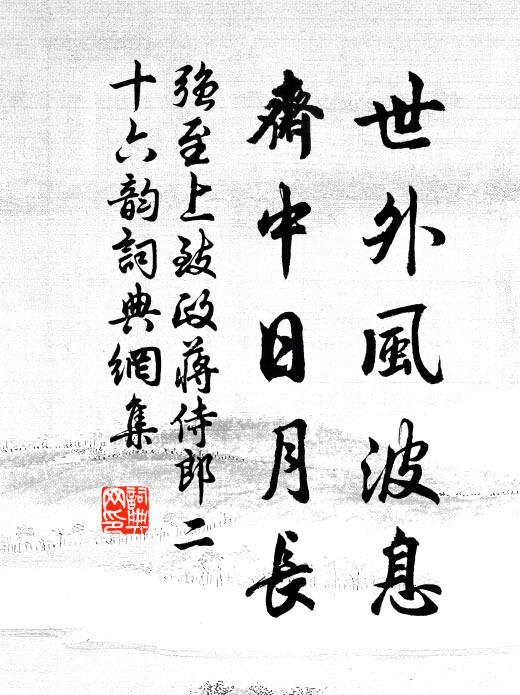 世外風波息
齋中日月長
強至上致政蔣侍郎二
十六韵詞典網集
詞典
网印